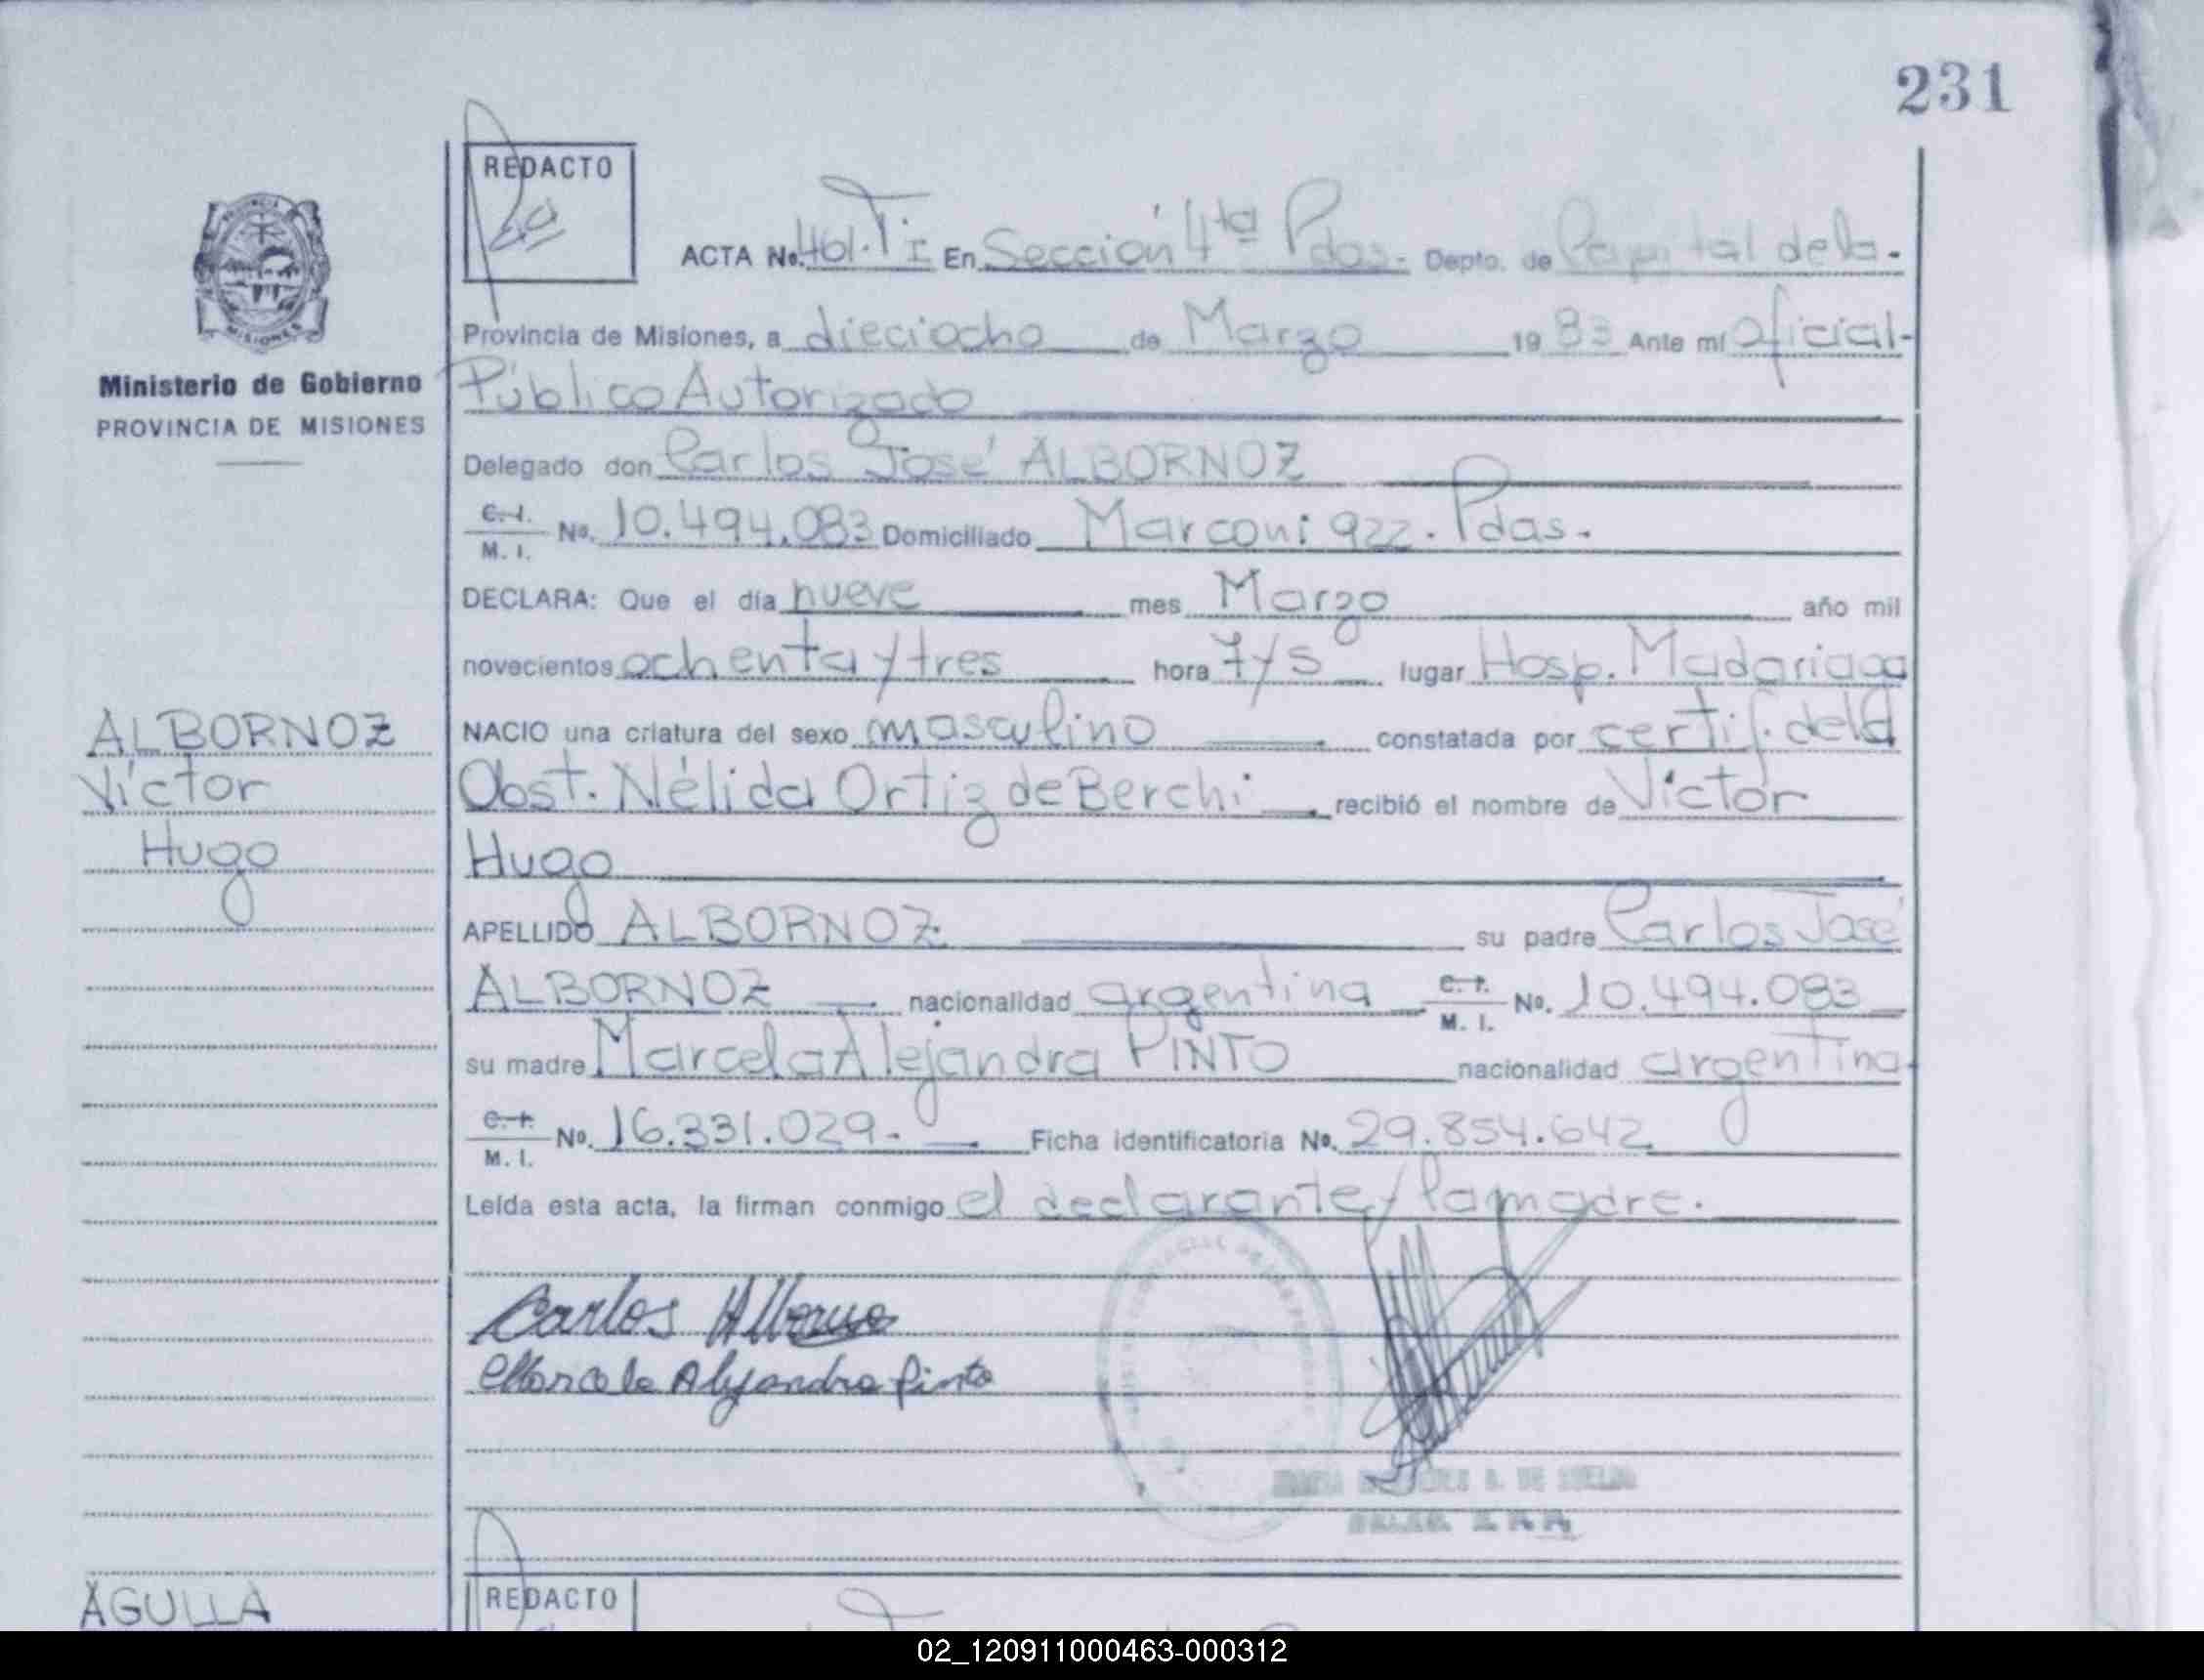 231
REDACTO
ACTA No. 461. T° I En Sección 4ta Pdas. Depto. de Capital de la.
Provincia de Misiones, a dieciocho de Marzo 19 83 Ante mí Oficial
Público Autorizado
Delegado don Carlos José ALBORNOZ
C. I. M. I. No. 10.494.083 Domiciliado Marconi 922. Pdas.
DECLARA: Que el día nueve mes Marzo año mil
novecientos ochenta y tres hora 7 y 5 lugar Hosp. Madariaga
NACIO una criatura del sexo masculino constatada por certif. de la
Obst. Nélida Ortiz de Berchi recibió el nombre de Víctor
Hugo
APELLIDO ALBORNOZ su padre Carlos José
ALBORNOZ nacionalidad argentina C. I. M. I. No. 10.494.083
su madre Marcela Alejandra PINTO nacionalidad argentina
C. I. M. I. No. 16.331.029. Ficha identificatoria No. 29.854.642
Leída esta acta, la firman conmigo el declarante y la madre.
Carlos Albornoz
Marcela Alejandra Pinto
Ministerio de Gobierno
PROVINCIA DE MISIONES
ALBORNOZ
Víctor
Hugo
AGUILLA
REDACTO
02_120911000463-000312